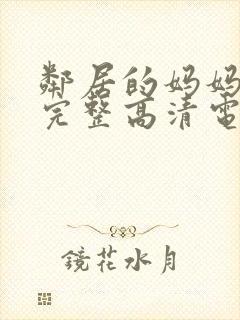 鄰居的妈妈
完整高清電
鏡花水月